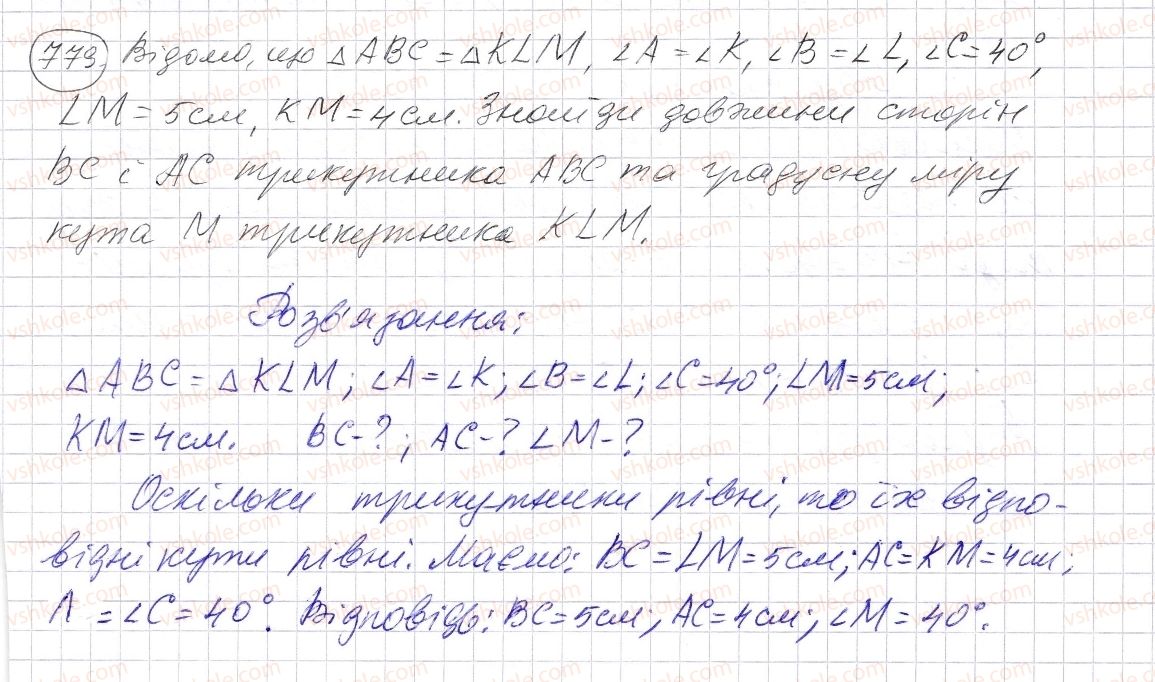 779. Відомо, що △ABC = △KLM, ∠A = ∠K, ∠B = ∠L, ∠C = 40°,
LM = 5см, KM = 4см. Знайди довжини сторін
BC і AC трикутника ABC та градусну міру
кута M трикутника KLM.
Розв'язання:
△ABC = △KLM; ∠A = ∠K; ∠B = ∠L; ∠C = 40°; LM = 5см;
KM = 4см. BC - ?; AC - ? ∠M - ?
Оскільки трикутники рівні, то їх відпо-
відні кути рівні. Маємо: BC = LM = 5см; AC = KM = 4см;
Λ = ∠C = 40°. Відповідь: BC = 5см; AC = 4см; ∠M = 40°.